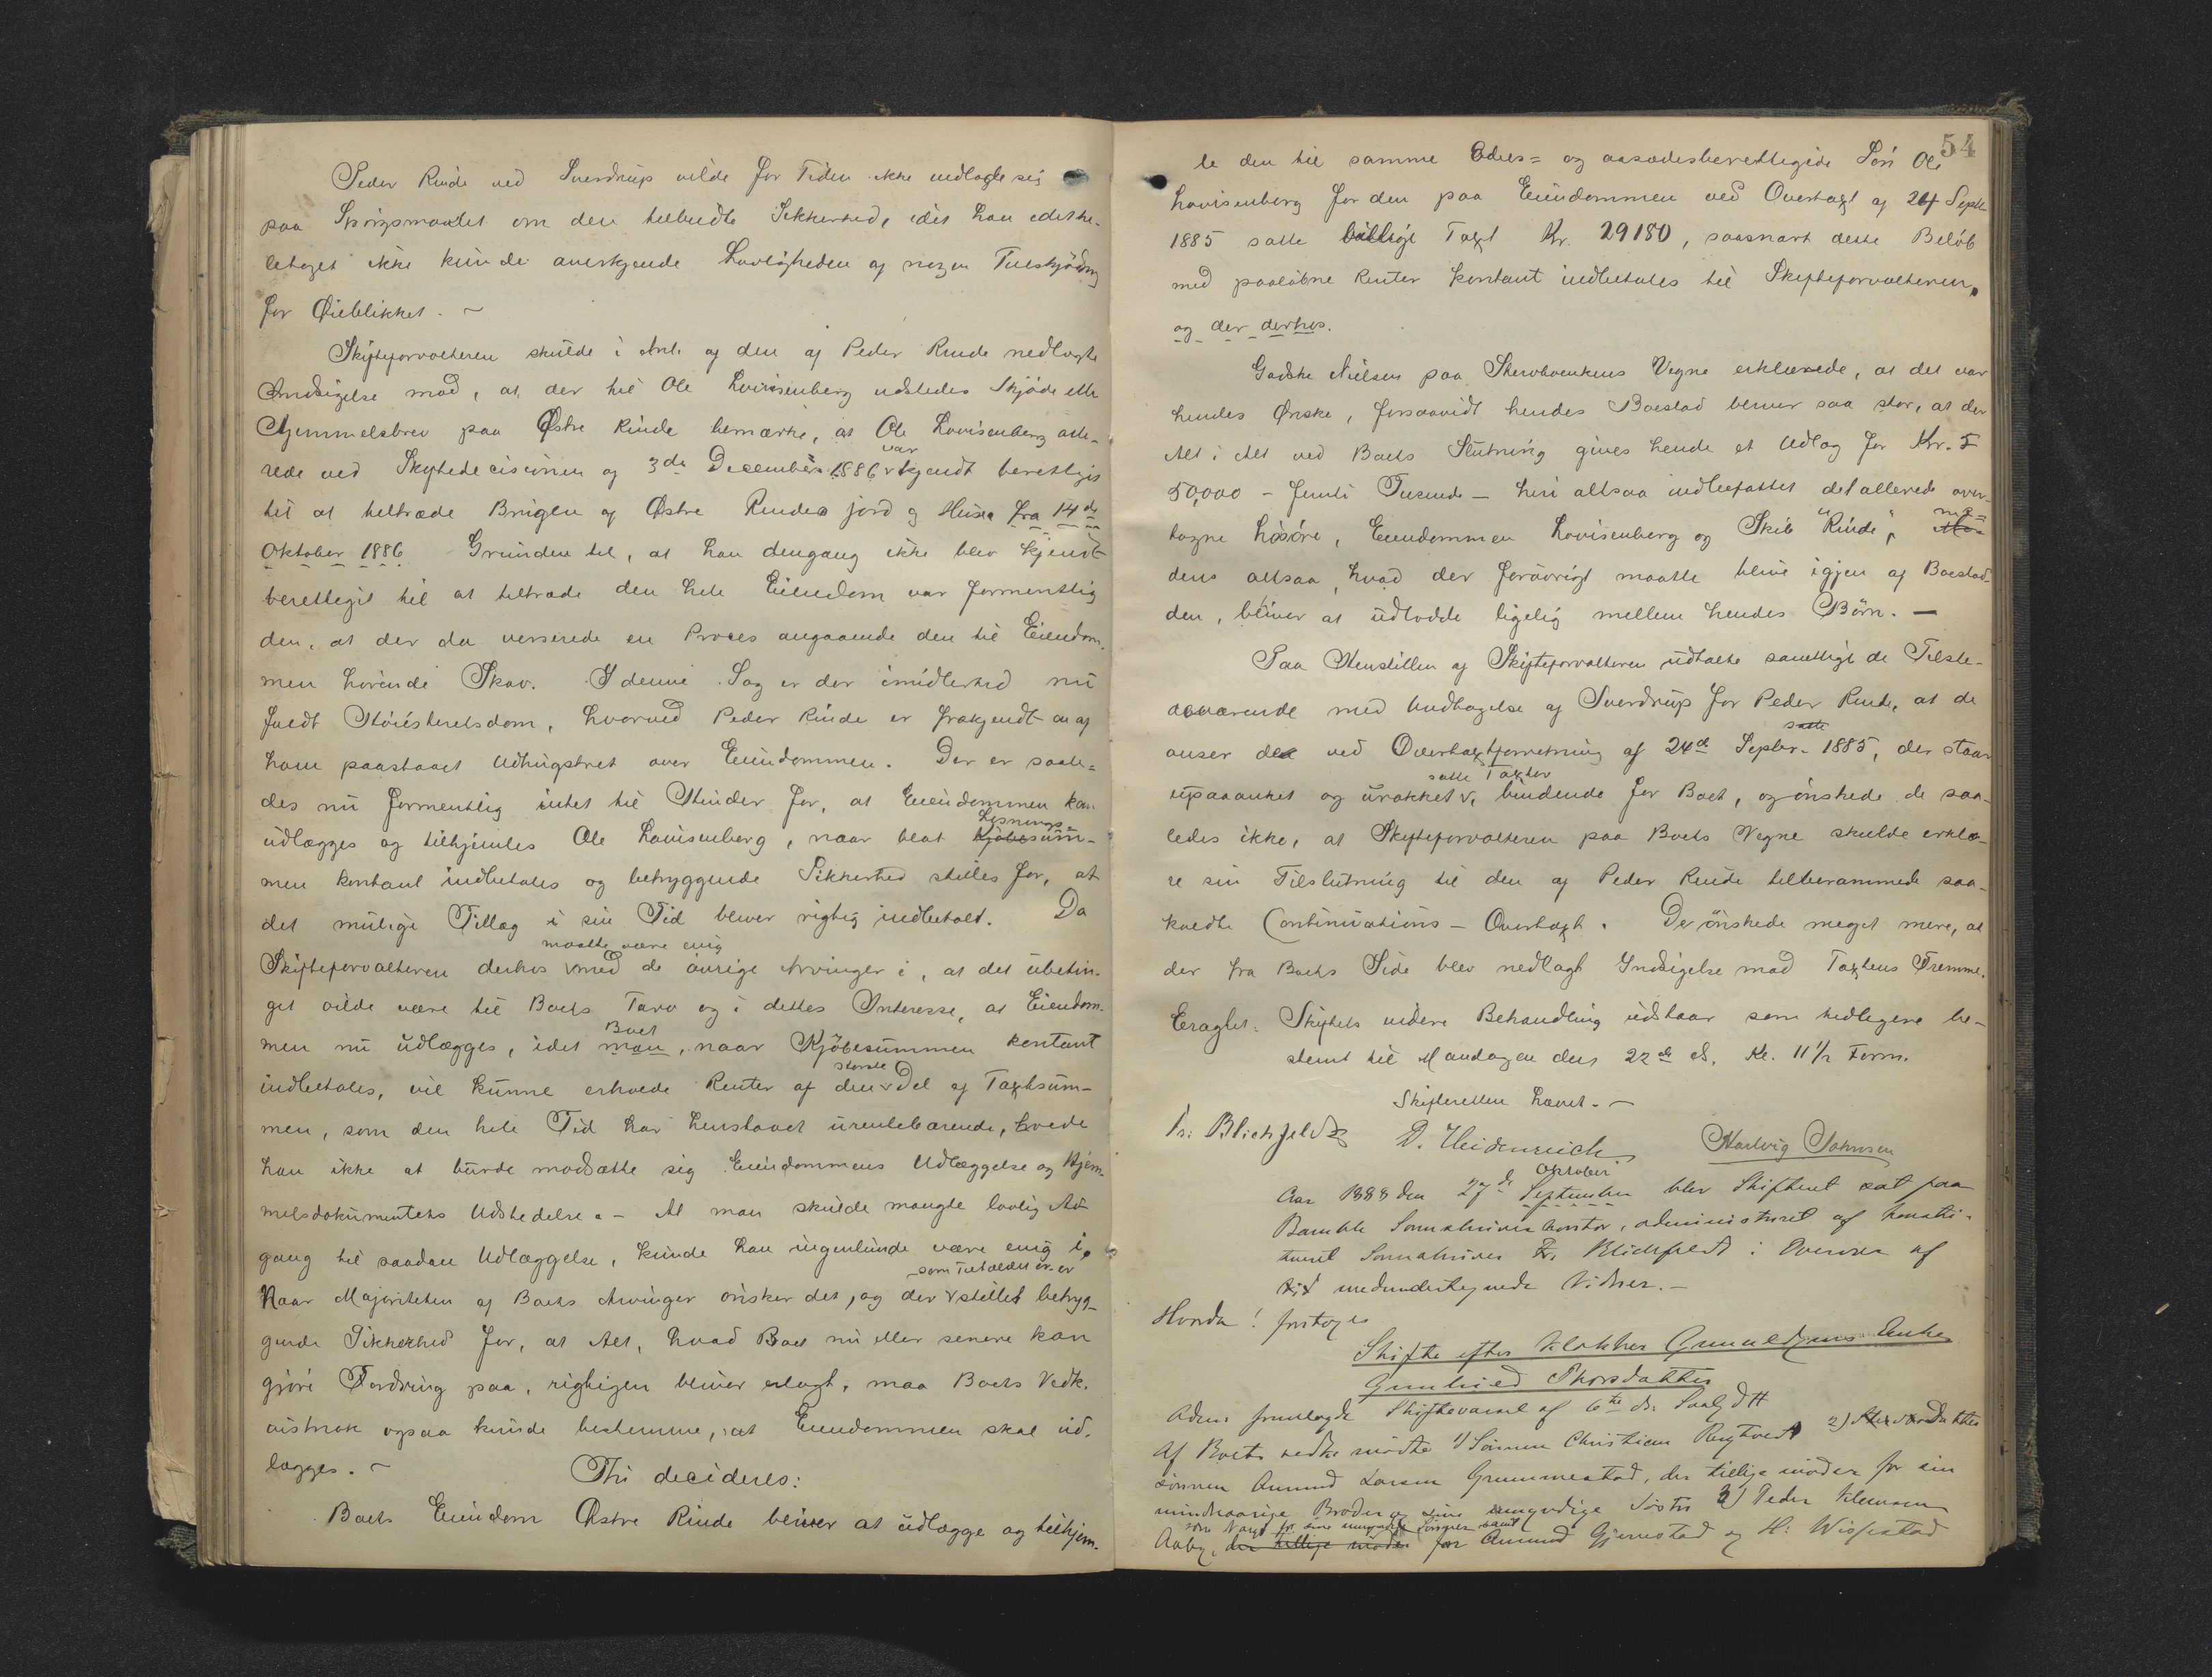 Peder Rinde ved Sverdrup vilde for Tiden ikke udtale sig
paa Spørgsmaalet om den tilbudte Sikkerhed, idet han idethe-
letaget ikke kunde anerkjende Lovligheden af nogen Tilskjødning
for Øieblikket. —
Skifteforvalteren skulde i Anl. af den af Peder Rinde nedlagte
Indsigelse mod, at der til Ole Lovisenberg udstedes Skjøde eller
Hjemmelsbrev paa Østre Rinde bemærke, at Ole Lovisenberg alle-
rede ved Skiftedecisionen af 3die December 1886 var kjendt berettiget
til at tiltræde Brugen af Østre Rindes jord og Huse fra 14de
Oktober 1886. Grunden til, at han dengang ikke blev kjendt
berettiget til at tiltræde den hele Eiendom var formentlig
den, at der da verserede en Proces angaaende den til Eiendom-
men hørende Skov. I denne Sag er der imidlertid nu
faldt Høiesteretsdom, hvorved Peder Rinde er frakjendt en af
ham paastaaet Udhugstret over Eiendommen. Der er saale-
des nu formentlig intet til Hinder for, at Eiendommen kan
udlægges og tilhjemles Ole Lovisenberg, naar blot Løsnings- Kjøbesum-
men kontant indbetales og betryggende Sikkerhed stilles for, at
det mulige Tillæg i sin Tid bliver rigtig indbetalt. Da
Skifteforvalteren derhos maatte være enig med de øvrige Arvinger i, at det ubetin-
get vilde være til Boets Tarv og i dettes Interesse, at Eiendom-
men nu udlægges, idet Boet man, naar Kjøbesummen kontant
indbetales, vil kunne erholde Renter af den største Del af Taxtsum-
men, som den hele Tid har henstaaet urentebærende, troede
han ikke at burde modsætte sig Eiendommens Udlæggelse og Hjem-
melsdokumentets Udstedelse. — At man skulde mangle lovlig Ad-
gang til saadan Udlæggelse, kunde han ingenlunde være enig i.
Naar Majoriteten af Boets Arvinger ønsker det, og der som Tilfældet er, er stillet betryg-
gende Sikkerhed for, at Alt, hvad Boet nu eller senere kan
gjøre Fordring paa, rigtigen bliver erlagt, maa Boets Vedk.
ogsaa kunde bestemme, at Eiendommen skal ud-
lægges. —
Thi decideres:
Boets Eiendom Østre Rinde bliver at udlægge og tilhjem-
54
le den til samme Odels= og aasædesberettigede Søn Ole
Lovisenberg for den paa Eiendommen ved Overtaxt af 24 Septb.
1885 satte billige Taxt Kr. 29180, saasnart dette Beløb
med paaløbne Renter kontant indbetales til Skifteforvalteren.
og der derhos.
Godske Nielsen paa Stervboenkens Vegne erklærede, at det var
hendes Ønske, forsaavidt hendes Boeslod bliver saa stor, at der
Alt i Alt ved Boets Slutning gives hende et Udlæg for Kr.
50,000 – femti Tusende – heri altsaa indbefattet det allerede over-
tagne Løsøre, Eiendommen Lovisenberg og Skib "Rinde",
dens altsaa, hvad der forøvrigt maatte blive igjen af Boeslod-
den, bliver at udlodde ligelig mellem hendes Børn. —
Paa Henstillen af Skifteforvalteren udtalte samtlige de Tilste-
deværende med Undtagelse af Sverdrup for Peder Rinde, at de
anser de ved Overtaxtforretning af 24de Septbr. 1885, satte der staar
upaaanket og urokket, satte Taxter bindende for Boet, og ønskede de saa-
ledes ikke, at Skifteforvalteren paa Boets Vegne skulde erklæ-
re sin Tilslutning til den af Peder Rinde tilberammede saa-
kaldte Continuations-Overtaxt. De ønskede meget mere, at
der fra Boets Side blev nedlagt Indsigelse mod Taxtens Fremme.
Eragtet: Skiftets videre Behandling udstaar som tidligere be-
stemt til Mandagen den 22de ds. Kl. 11½ Form.
Skifteretten hævet. —
Fr. Blichfeldt D. Heidenreich Hartvig Johnsen
Aar 1888 den 27de Oktober September blev Skifteret sat paa
Bamble Sorenskriverkontor, administreret af konsti-
tueret Sorenskriver Fr. Blichfeldt i Overvær af
medundertegnede Vidner. —
Hvorda! foretoges
Skifte efter Klokker Enke
Thorsdatter
Adm. fremlagde Skiftevarsel af 6te ds.
Af Boets vedk. mødte 1) Sønnen Christian 2)
sønnen Amund Larsen Grummestad, der tillige møder for sin
mindreaarige Broder og sine umyndige Søstre 3) Peder Klausen
Aaby, der tillige møder for Amund Gjernestad og H. Wissestad